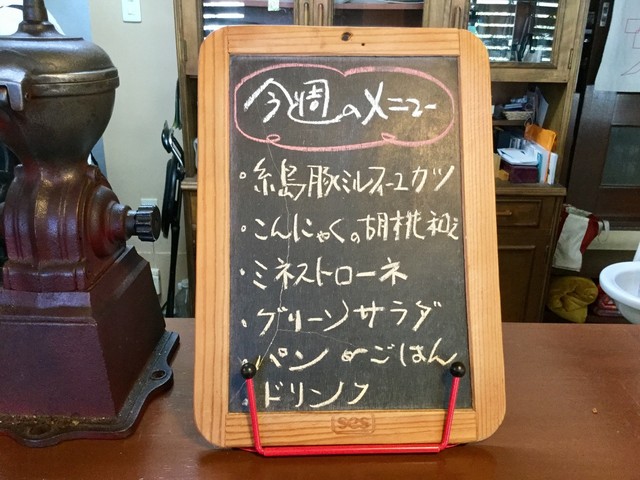 今週のメニュー
・糸島豚ミルフィーユカツ
・こんにゃくの胡桃和え
・ミネストローネ
・グリーンサラダ
・パン or ごはん
・ドリンク
SCS